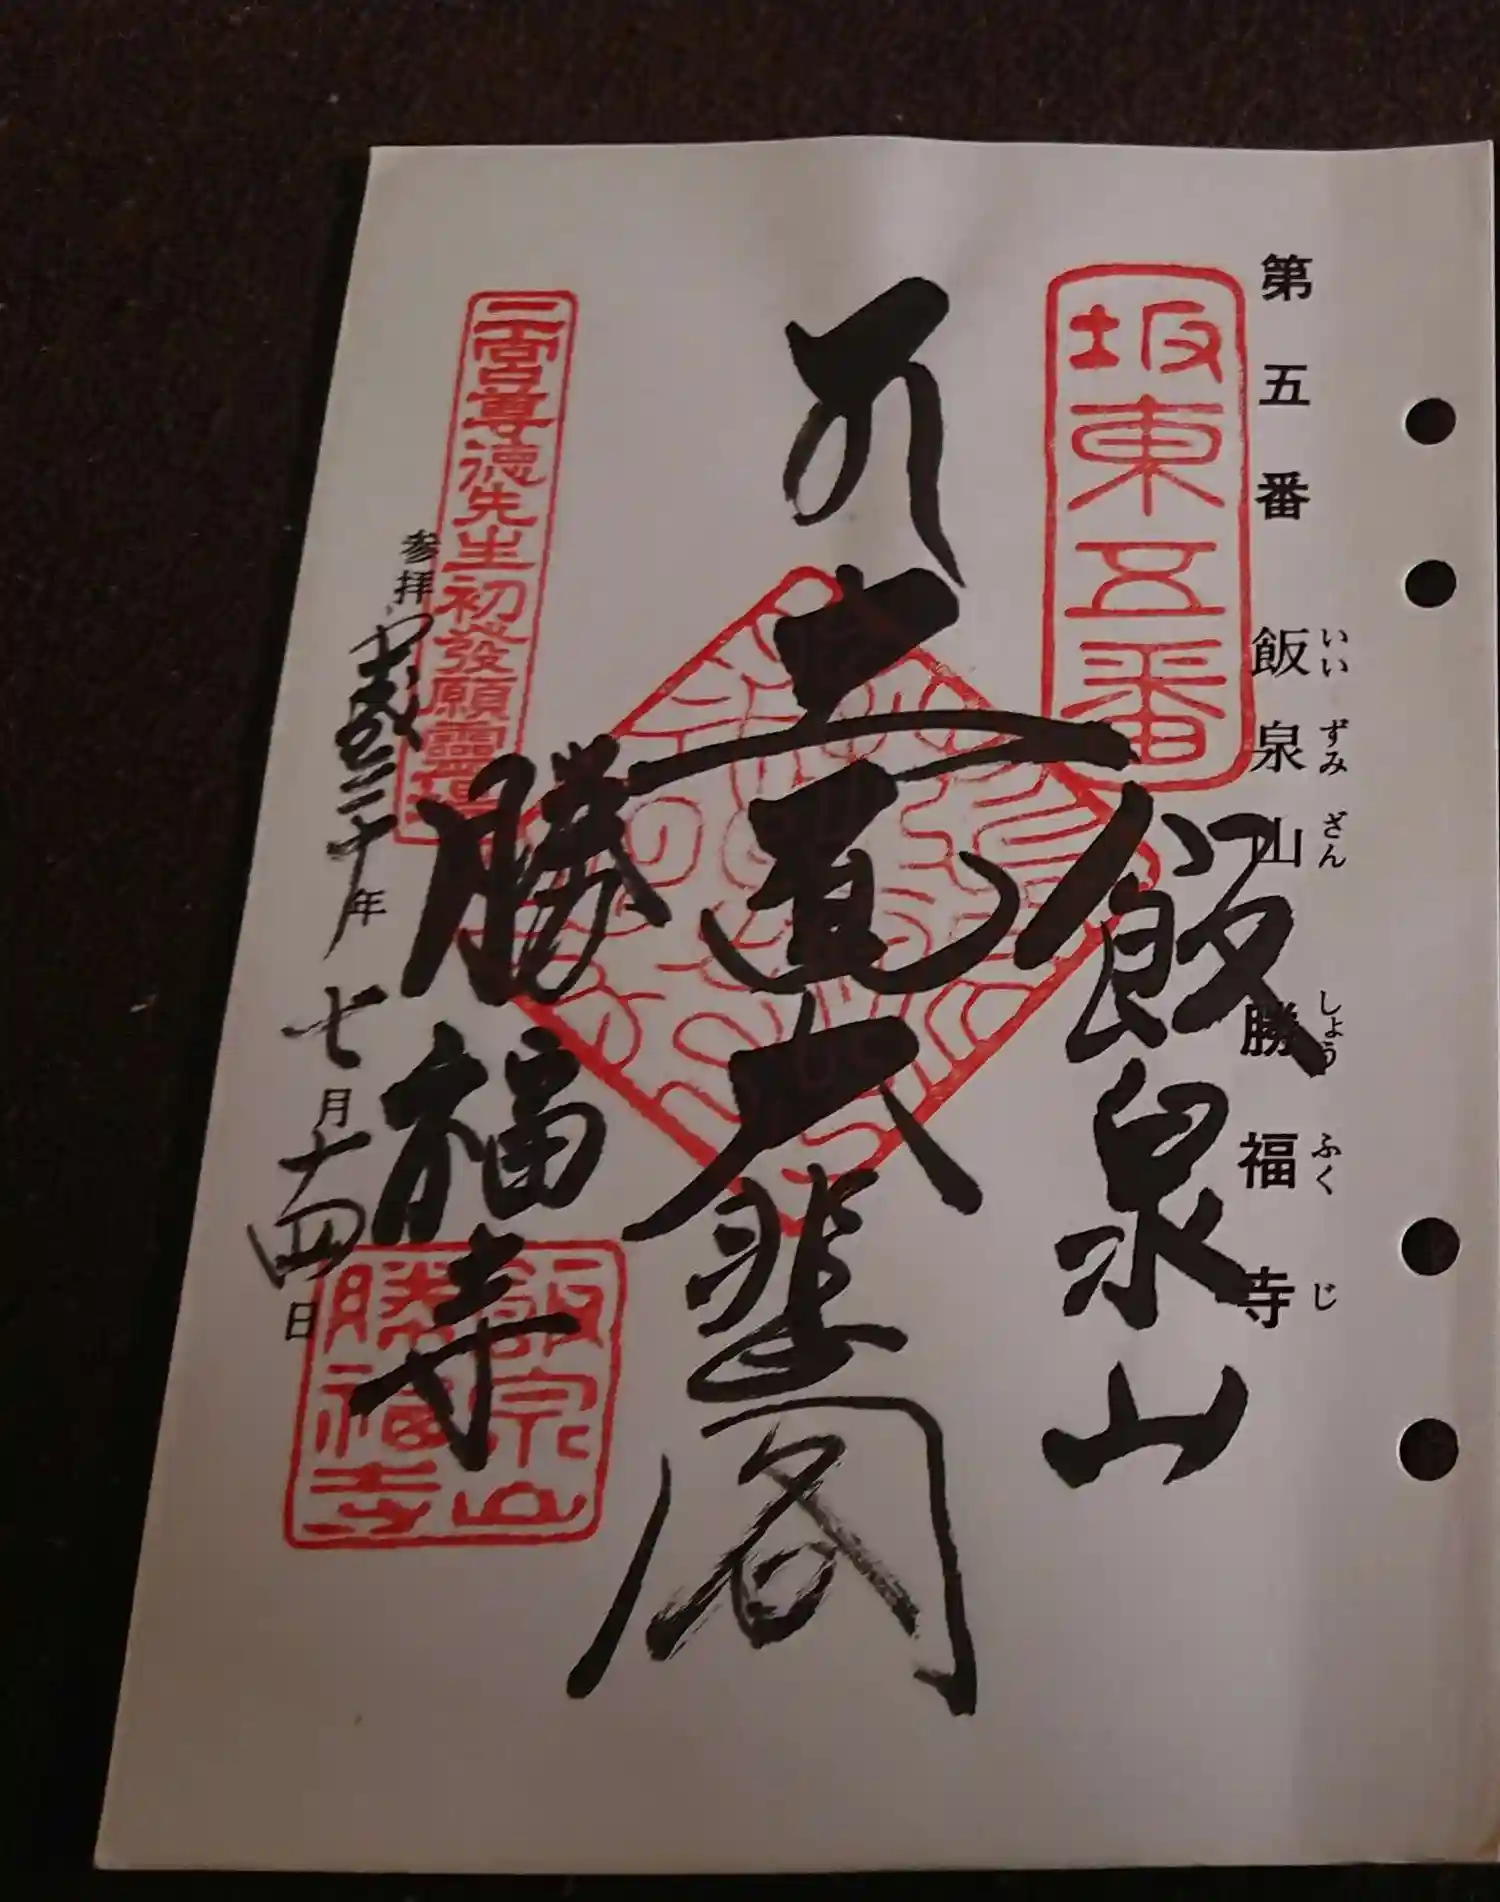 第五番 飯泉山 勝福寺
いいずみざん しょうふくじ
坂東五番
飯泉山
大悲閣
勝福寺
飯泉山
勝福寺
二宮尊徳先生初發願靈場
参拝 平成三十年 七月十四日